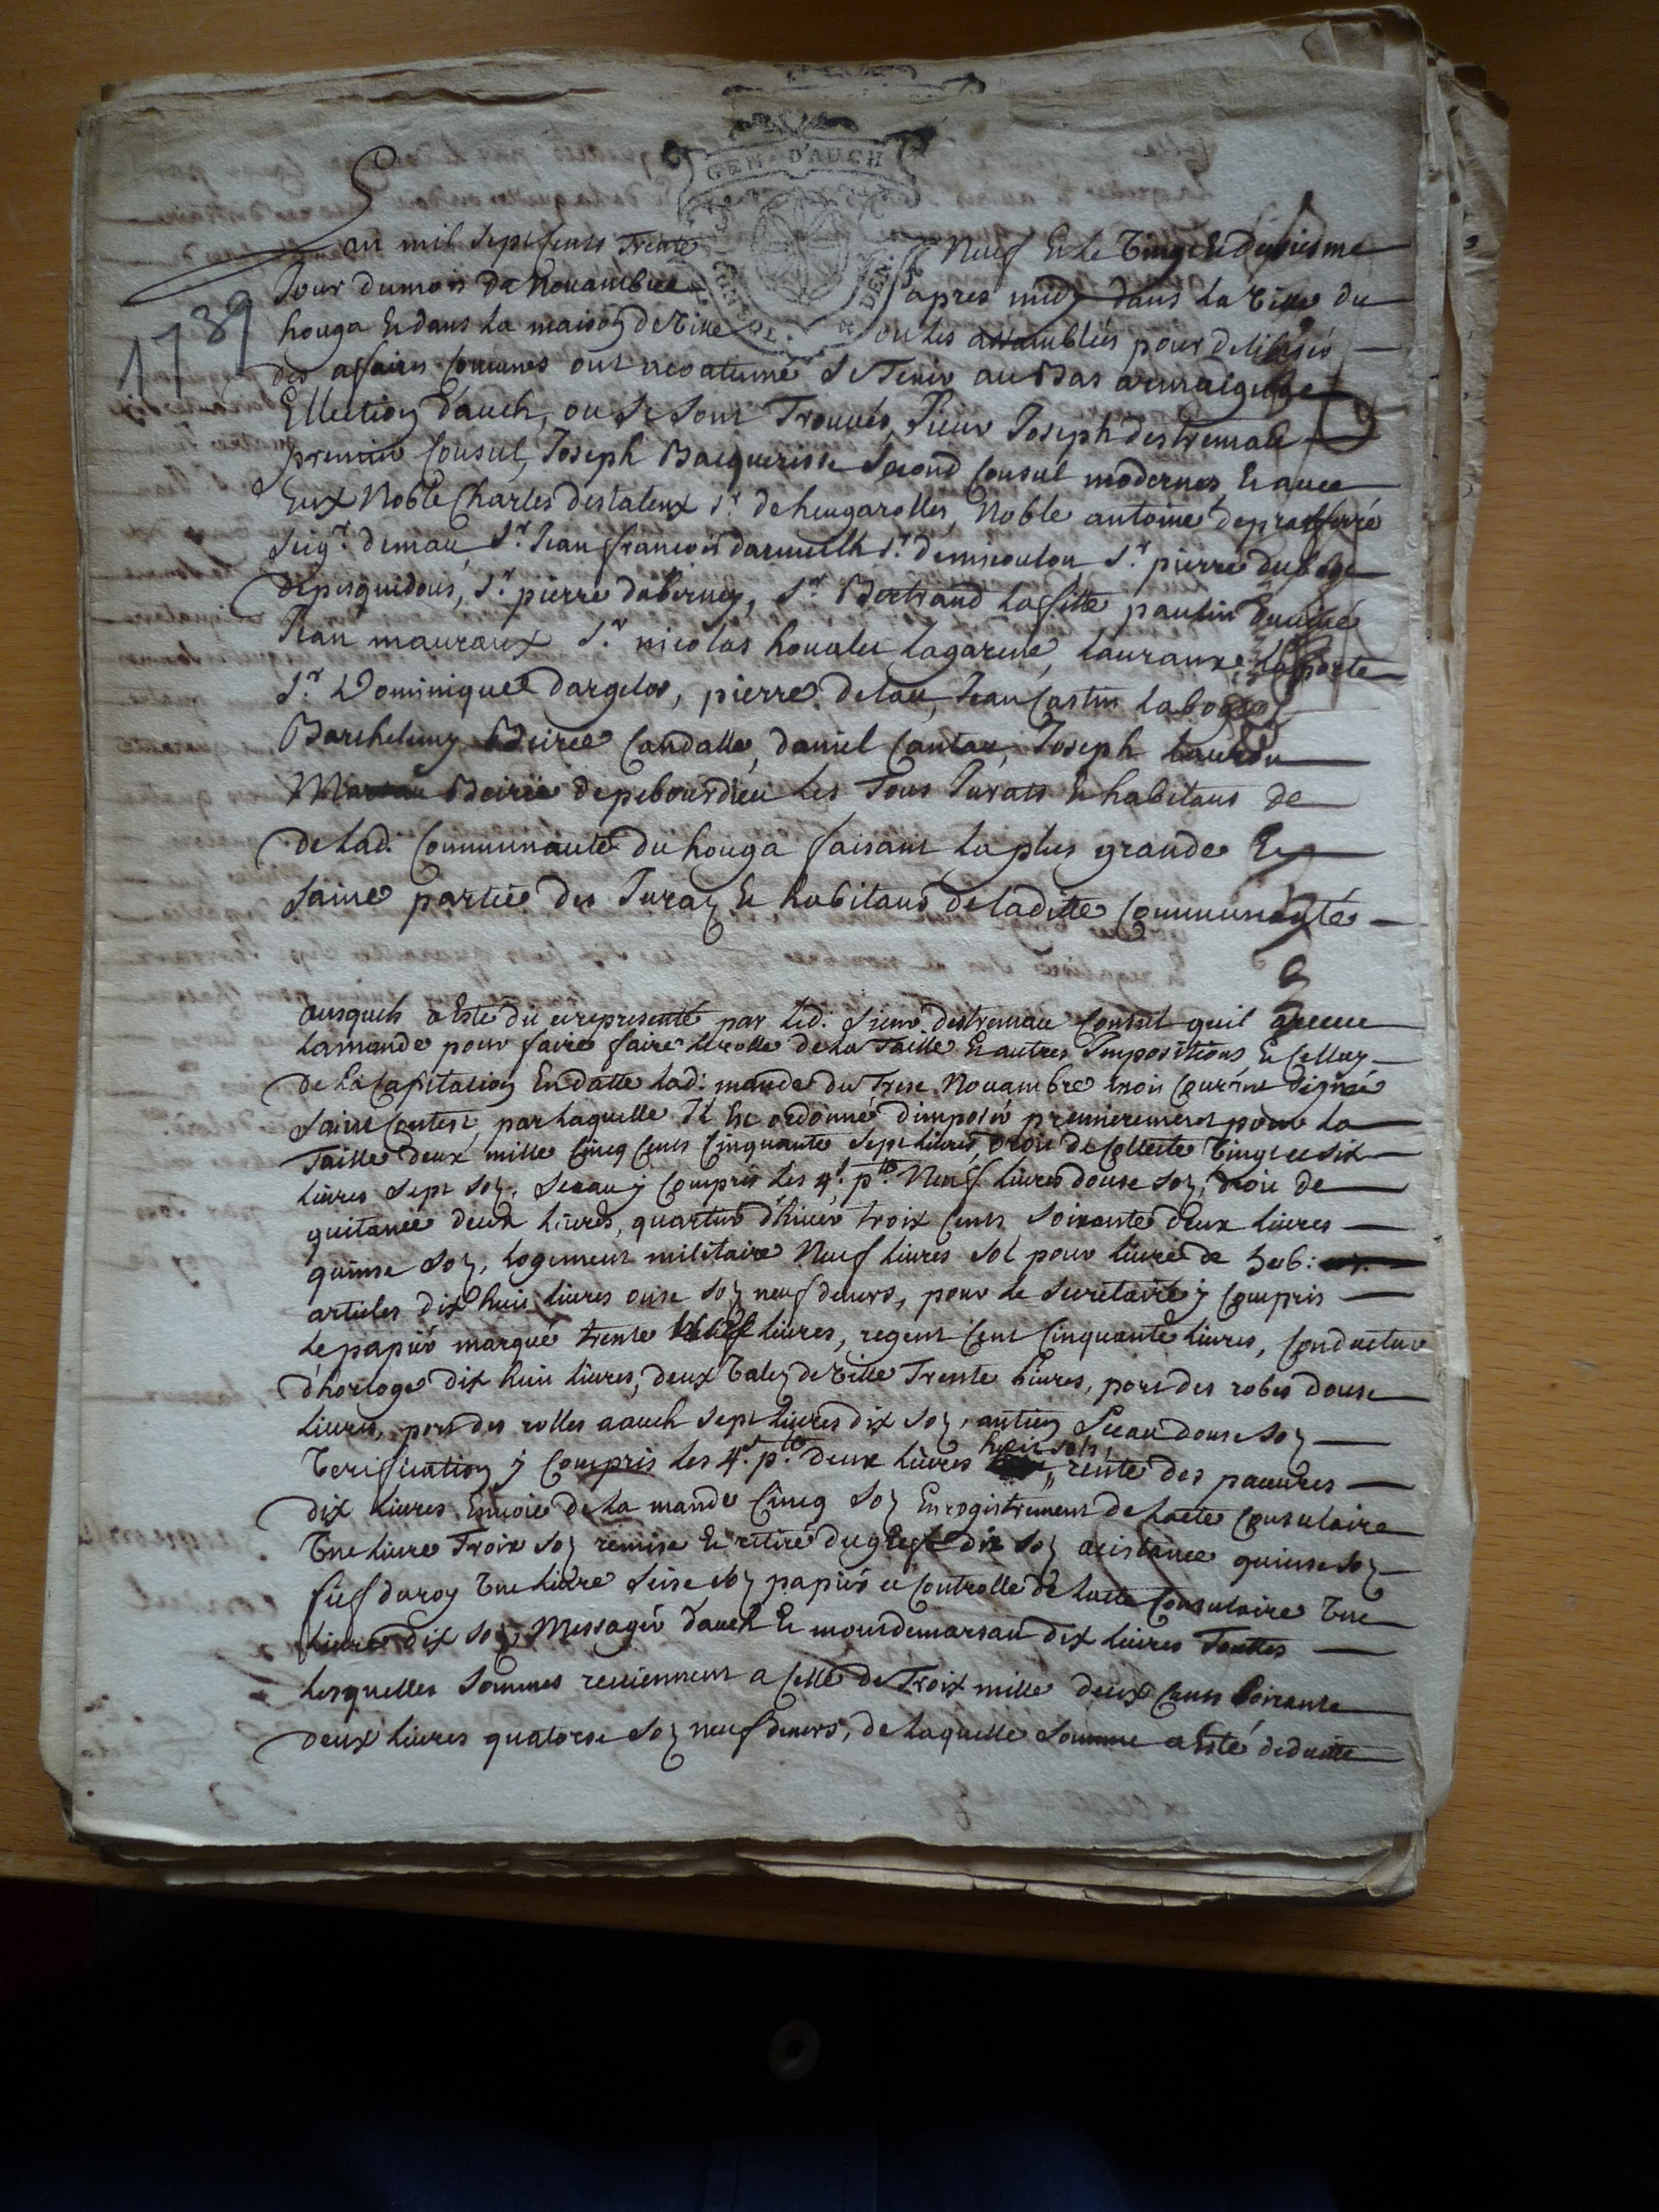 GEN. D'AUCH
L'an mil sept cents trente neuf et le vingt et deusiesme
1739
Jour du mois de Nouambre apres midy dans la ville du
houga et dans la maison de ville ou les assamblées pour deliberer
des afaires comunes ont acoatumé se tenir au Bas armaignac
Ellection d'auch, ou se sont trouvés, sieur Joseph destremau
premier Consul, Joseph Bacquerisse second Consul modernes, et auec
eux Noble Charles destaleux sr. de heugarolles, Noble antoine de prasferré
seigr. de mau, sr. Jean francois darmuilh sr. de misoulou, sr. pierre dubosc
de pesquidous, sr. pierre daberney, sr. Bertrand lafitte, paulin
Jean mauraux sr. nicolas houalet lagarene, laurans laporte
sr. Dominique dargelos, pierre delau, Jean Castin
Barthelemy Beiree Candalle, daniel Cantau, Joseph
Beirie de pebourdieu les tous Jurats et habitans de
de lad. Communauté du houga faisant la plus grande et
saine partie des Juratz et habitans de laditte Communauté
ausquels a esté dit et representé par led. sieur destremau Consul quil a receu
la mande pour faire faire le rolle de la taille et autres Impositions, et Celluy
de la Capitation en datte lad. mande du trese Nouambre mois courant signée
saint Contest, par laquelle Il est ordonné d'imposer premierement pour la
taille deux mille cincq cens cinquante sept liures, droit de collecte vingt et six
liures sept soz, seceau y compris les 4. s. pr. Neuf liures douse soz, droit de
quitance deux liures, quartier d'hiuer troix cents soixante deux liures
quinse soz, logement militaire Neuf liures sol pour liure de
articles dix huit liures onse soz neuf deniers, pour le secretaire y compris
le papier marqué trente liures, regent cent cinquante liures, conducteur
d'horloge dix huit liures, deux valez de ville trente liures, port des robes douse
liures, port des rolles a auch sept liures dix soz, antien seceau douse soz
verification y compris les 4. s. pr. deux liures huit sols, rente des pauures
dix liures Enuoie de la mande cincq soz Enregistrement de lacte consulaire
vne liure troix soz remise et retiré du greffe dix soz assistance quinse soz
fief du roy vne liure seise soz papier et controlle de lacte consulaire vne
liure dix soz, Messager d'auch et mont de marsan dix liures toutes
lesquelles sommes reuiennent a celle de troix mille deux cents soixante
deux liures quatorse soz neuf deniers, de laquelle somme a esté deduitte